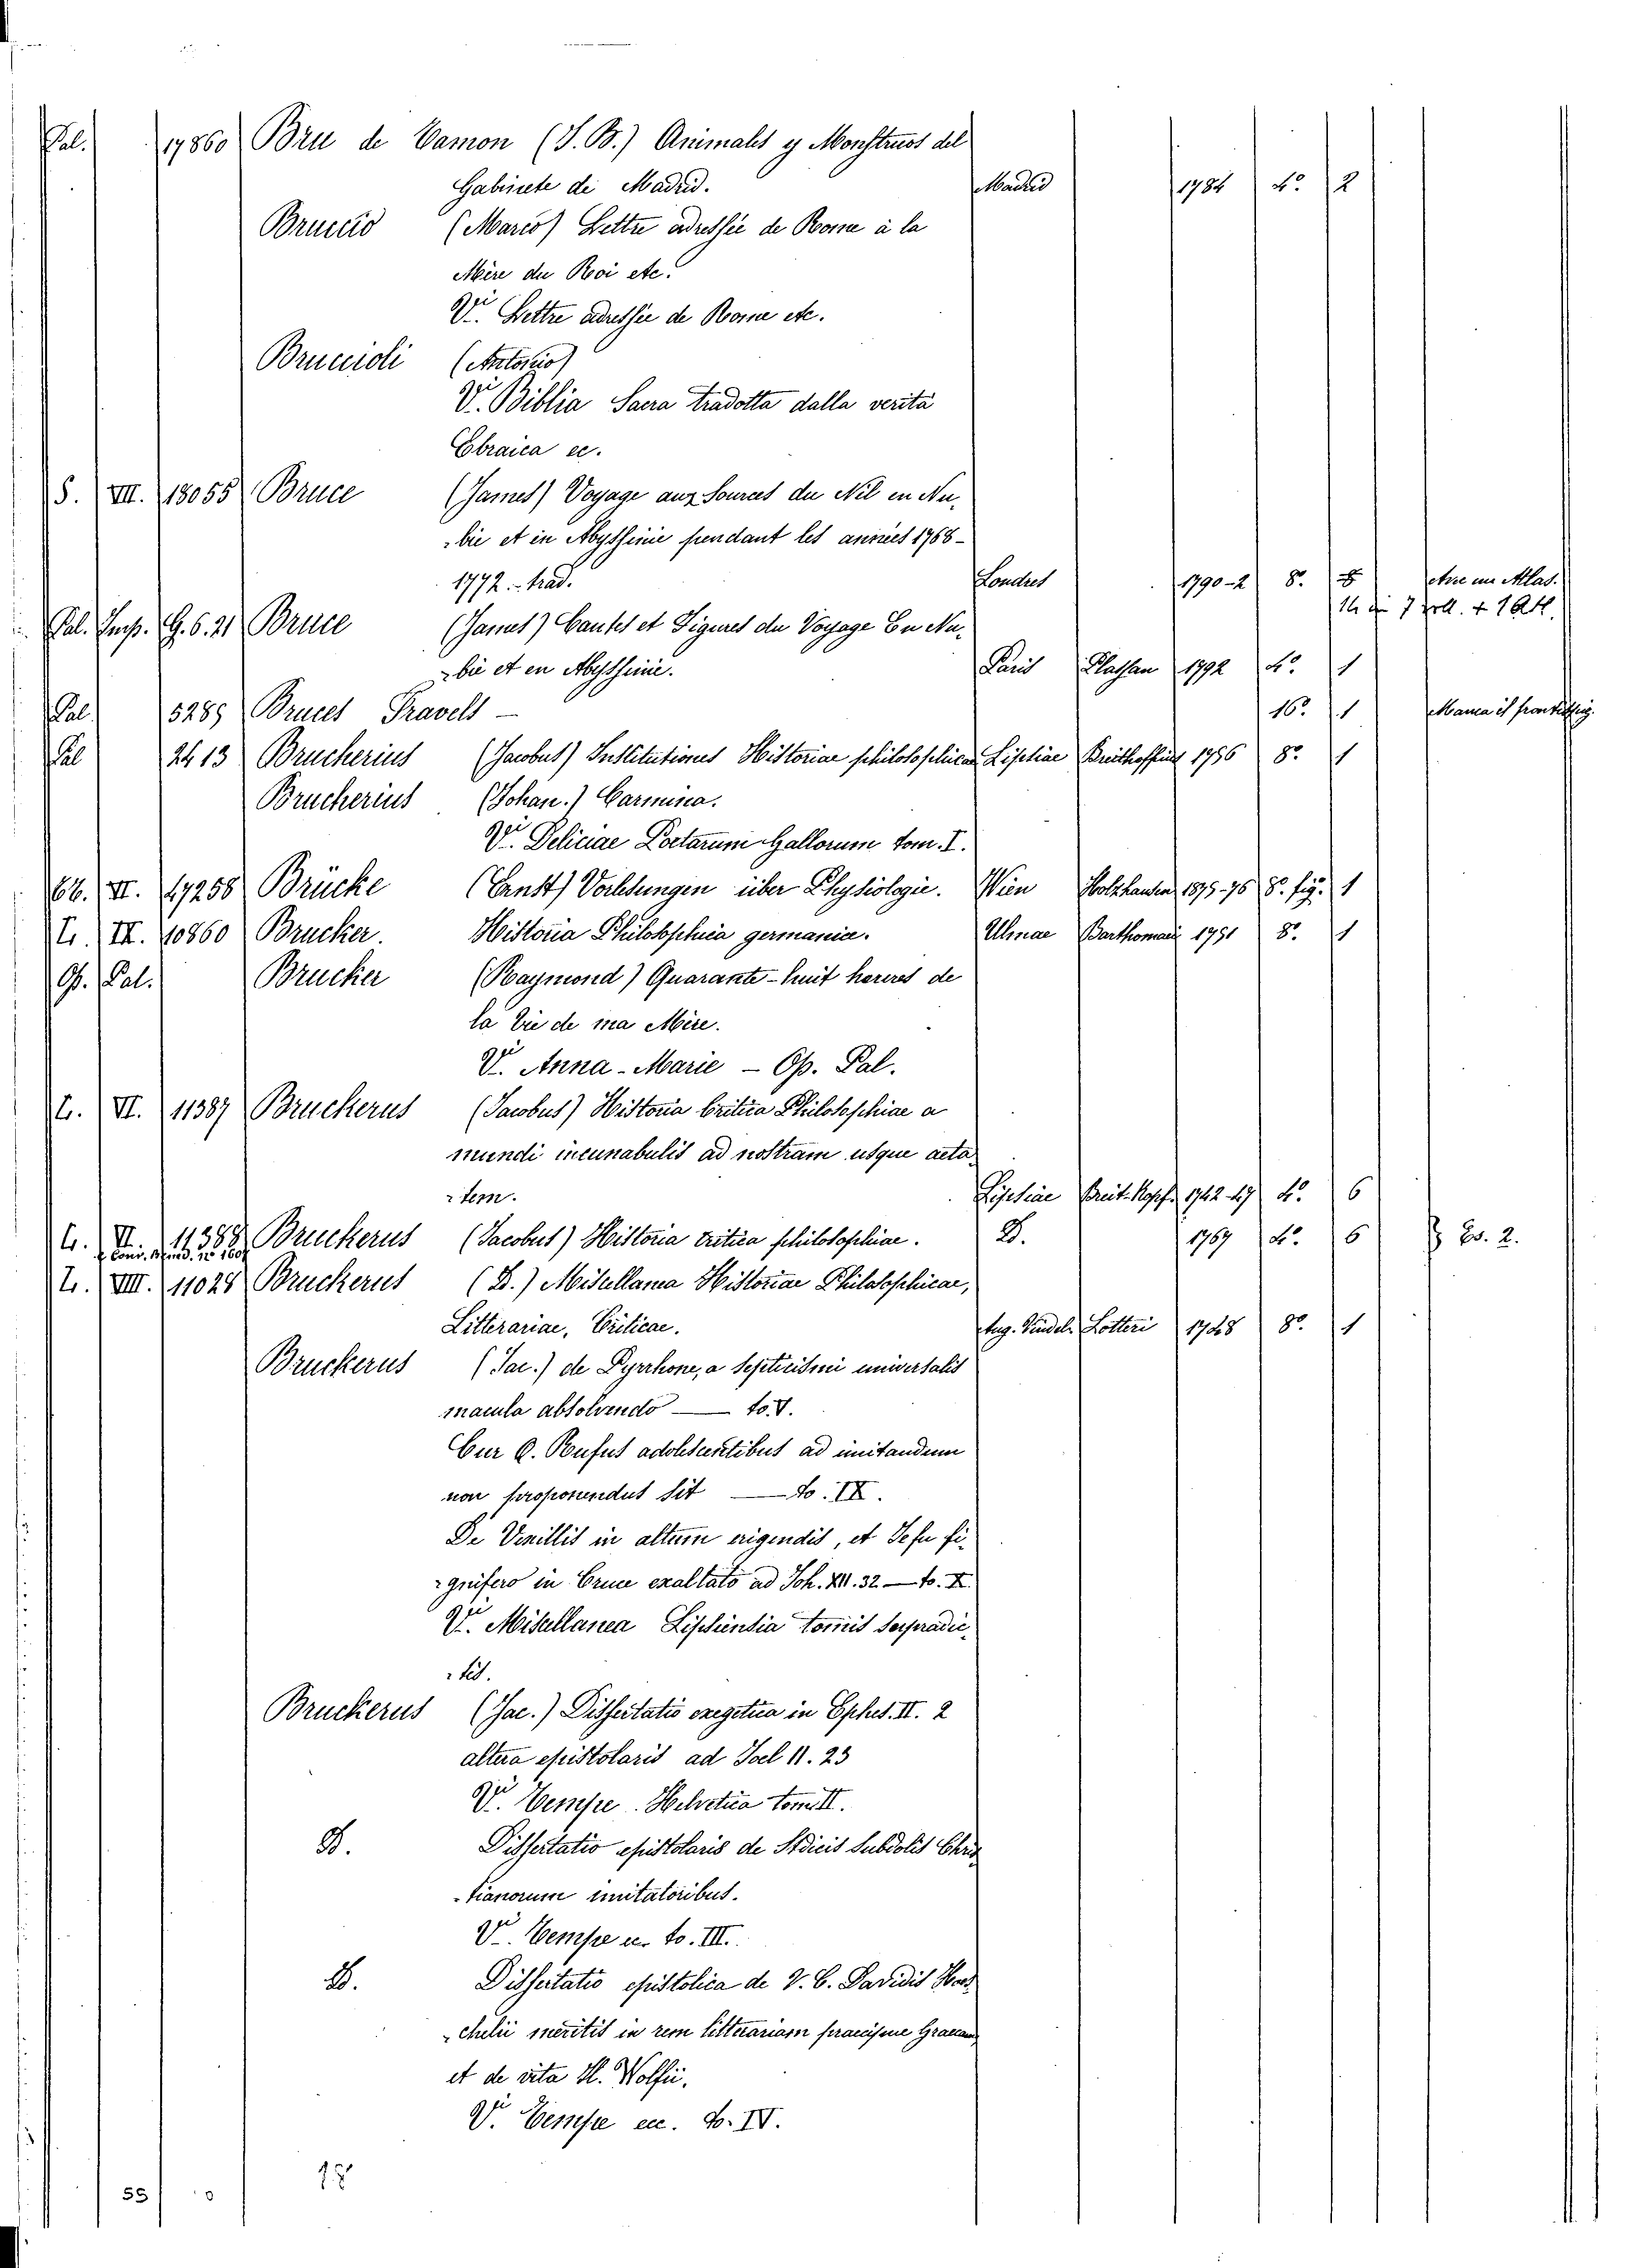 Pal. 17860 Bru de Ramon (J. B.) Animales y Monstruos del
Gabinete de Madrid. Madrid 1784 4º 2
Bruccio (Marco) Lettre adressée de Rome à la
Mère du Roi etc.
Vi. Lettre adressée de Rome etc.
Bruccioli (Antonio)
Vi. Biblia Sacra tradotta dalla verità
Ebraica ec.
S. VII. 18055 Bruce (James) Voyage aux Sources du Nil en Nu-
bie et in Abyssinie pendant les années 1768-
1772.- trad. Londres 1790-2 8º
14 di 7 voll. + 1 Atl.
Pal. Imp. G. 6. 21 Bruce (James) Cartes et Figures du Voyage En Nu-
bie et en Abyssinie. Paris Plassan 1792 4º 1
Pal. 5289 Bruces Travels — 16º 1 Manca il frontespizio.
Pal 2413 Brucherius (Jacobus) Institutiones Historiae philosophicae Lipsiae 1756 8º 1
Brucherius (Johan.) Carmina.
Vi. Deliciae Poetarum Gallorum tom. I.
66. VI. 17258 Brücke (Ernst) Vorlesungen über Physiologie. Wien 1875-76 8º fig. 1
L. IX. 10860 Brucker. Historia Philosophica germaniae. Ulmae Barthomaei 1751 8º 1
Op. Pal. Brucker (Raymond) Quarante-huit heures de
la Vie de ma Mère.
Vi. Anna-Marie — Op. Pal.
L. VI. 11387 Bruckerus (Jacobus) Historia Critica Philosophiae a
mundi incunabulis ad nostram usque aeta-
tem. Lipsiae Breit-Kopf. 1742-47 4º 6
L. VI. 11388 Bruckerus (Jacobus) Historia critica philosophiae. D. 1767 4º 6 Es. 2.
L. VIII. 11028 Bruckerus (D.) Miscellanea Historiae Philosophicae,
Litterariae, Criticae. Aug. Vindel. Lotteri 1748 8º 1
Bruckerus (Jac.) de Pyrrhone, a scepticismi universalis
macula absolvendo — to. V.
Cur Q. Rufus adolescentibus ad imitandum
non proponendus sit — to. IX.
De Vexillis in altum erigendis, et Jesu si-
gnifero in Cruce exaltato ad Joh. XII. 32 — to. X.
Vi. Miscellanea Lipsiensia tomis supradic-
tis.
Bruckerus (Jac.) Dissertatio exegetica in Ephes. II. 2
altera epistolaris ad Joel 11. 23
Vi. Tempe Helvetica tom. II.
D. Dissertatio epistolaris de Stoicis subdolis Chris-
tianorum imitatoribus.
Vi. Tempe ec. to. III.
D. Dissertatio epistolica de V. C. Davidis Hoes-
chelii meritis in rem litterariam praecipue Graecam
et de vita H. Wolfii.
Vi. Tempe ec. to. IV.
55 0 18